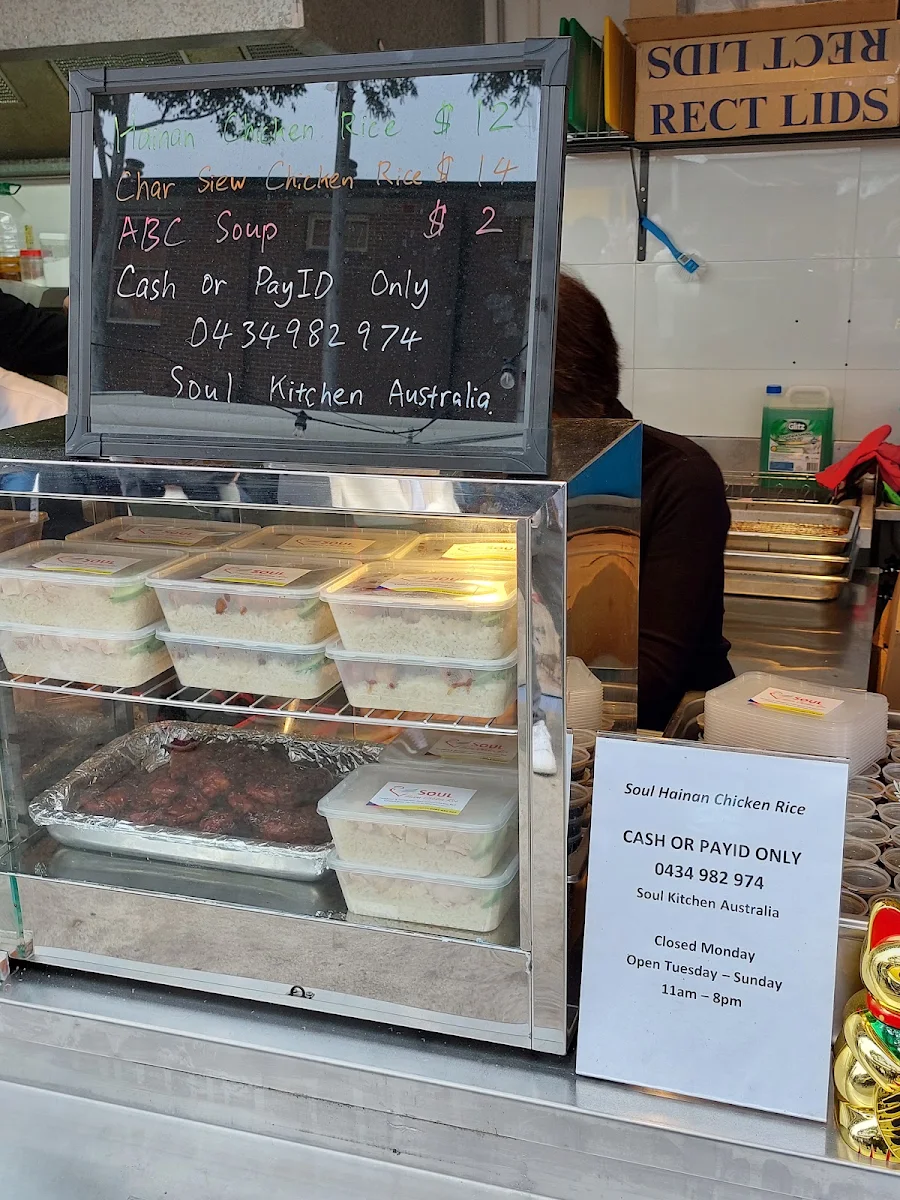 RECT LIDS
RECT LIDS
Hainan Chicken Rice $ 12
Char Siew Chicken Rice $ 14
ABC Soup $ 2
Cash or PayID Only
0434982974
Soul Kitchen Australia.
Glitz
SOUL
SOUL
Soul Hainan Chicken Rice
CASH OR PAYID ONLY
0434 982 974
Soul Kitchen Australia
Closed Monday
Open Tuesday – Sunday
11am – 8pm